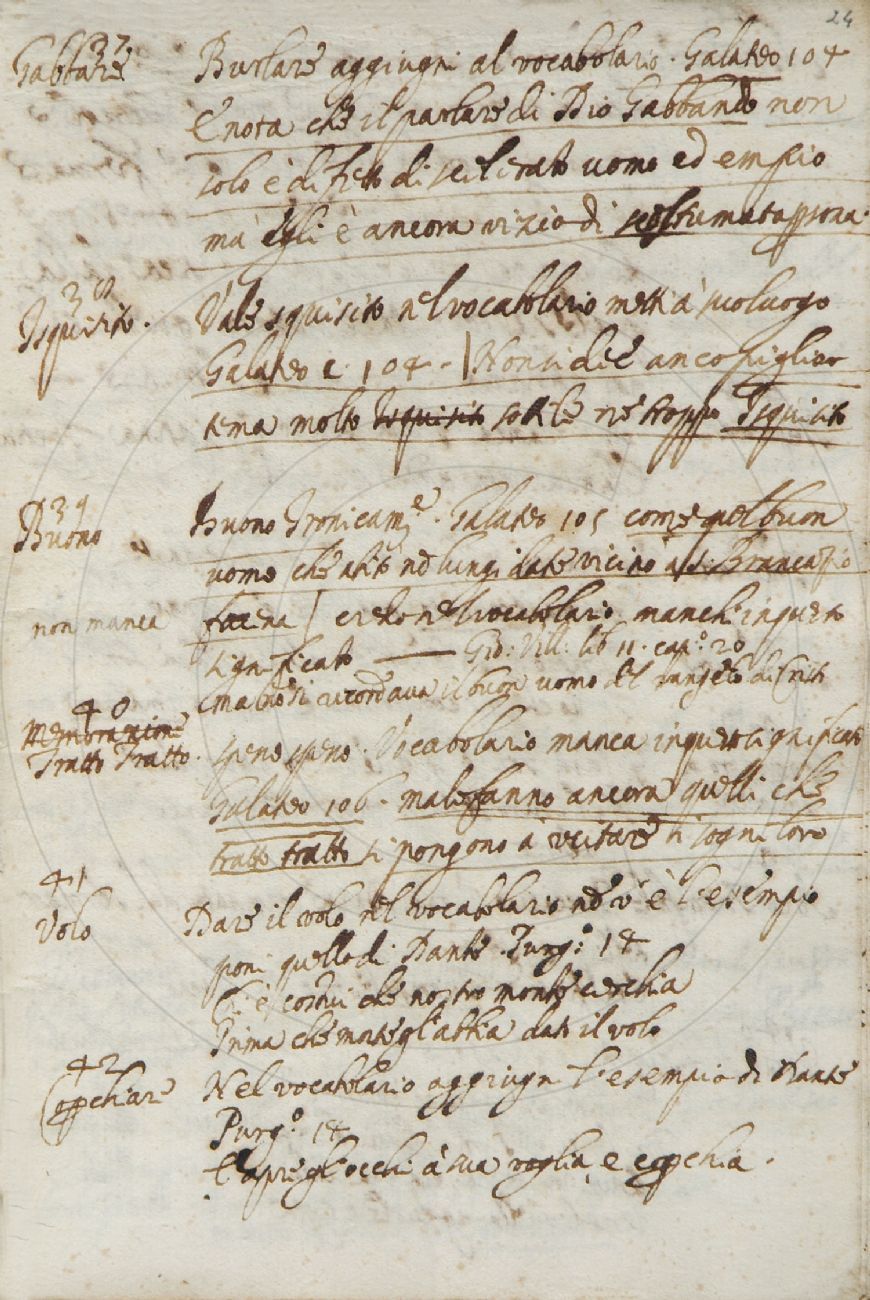 24
37
Gabbare Burlare aggiugni al vocabolario. Galateo 104
E nota che il parlare di Dio Gabbando non
solo è difetto di scilerato uomo ed empio
mà egli è ancora vizio di scostumata psona.
38
Isquisito. Vale squisito nel vocabolario metti à suo luogo
Galateo c. 104. Non si diè anco pigliar
tema molto Isquisito sottile ne troppo Isquisito
39
Buono Buono Ironicamte. Galateo 105 come quel buon
uomo che abitò nō lungi da te vicino a S. Brancazio
non manca facēna credo nel vocabolario manchi in questo
significato — Gio: Vill: lib 11. cap.o 20
ma nō si ricordava il buon uomo del Vangelo di Cristo
40
Membrazione
Tratto Tratto. spesso spesso. Vocabolario manca in questo significato
Galateo 106. male fanno ancora quelli che
tratto tratto si pongono à recitare li sogni loro
41
Volo Dare il volo nel vocabolario nō v'è l'esempio
poni quello di Dante. Purg.o 14
Chi è costui che nostro monte cerchia
Prima che morte gl'abbia dato il volo
42
Coperchiare Nel vocabolario aggiugni l'esempio di Dante
Purg.o 14
E apre gl'occhi à sua voglia e copchia.